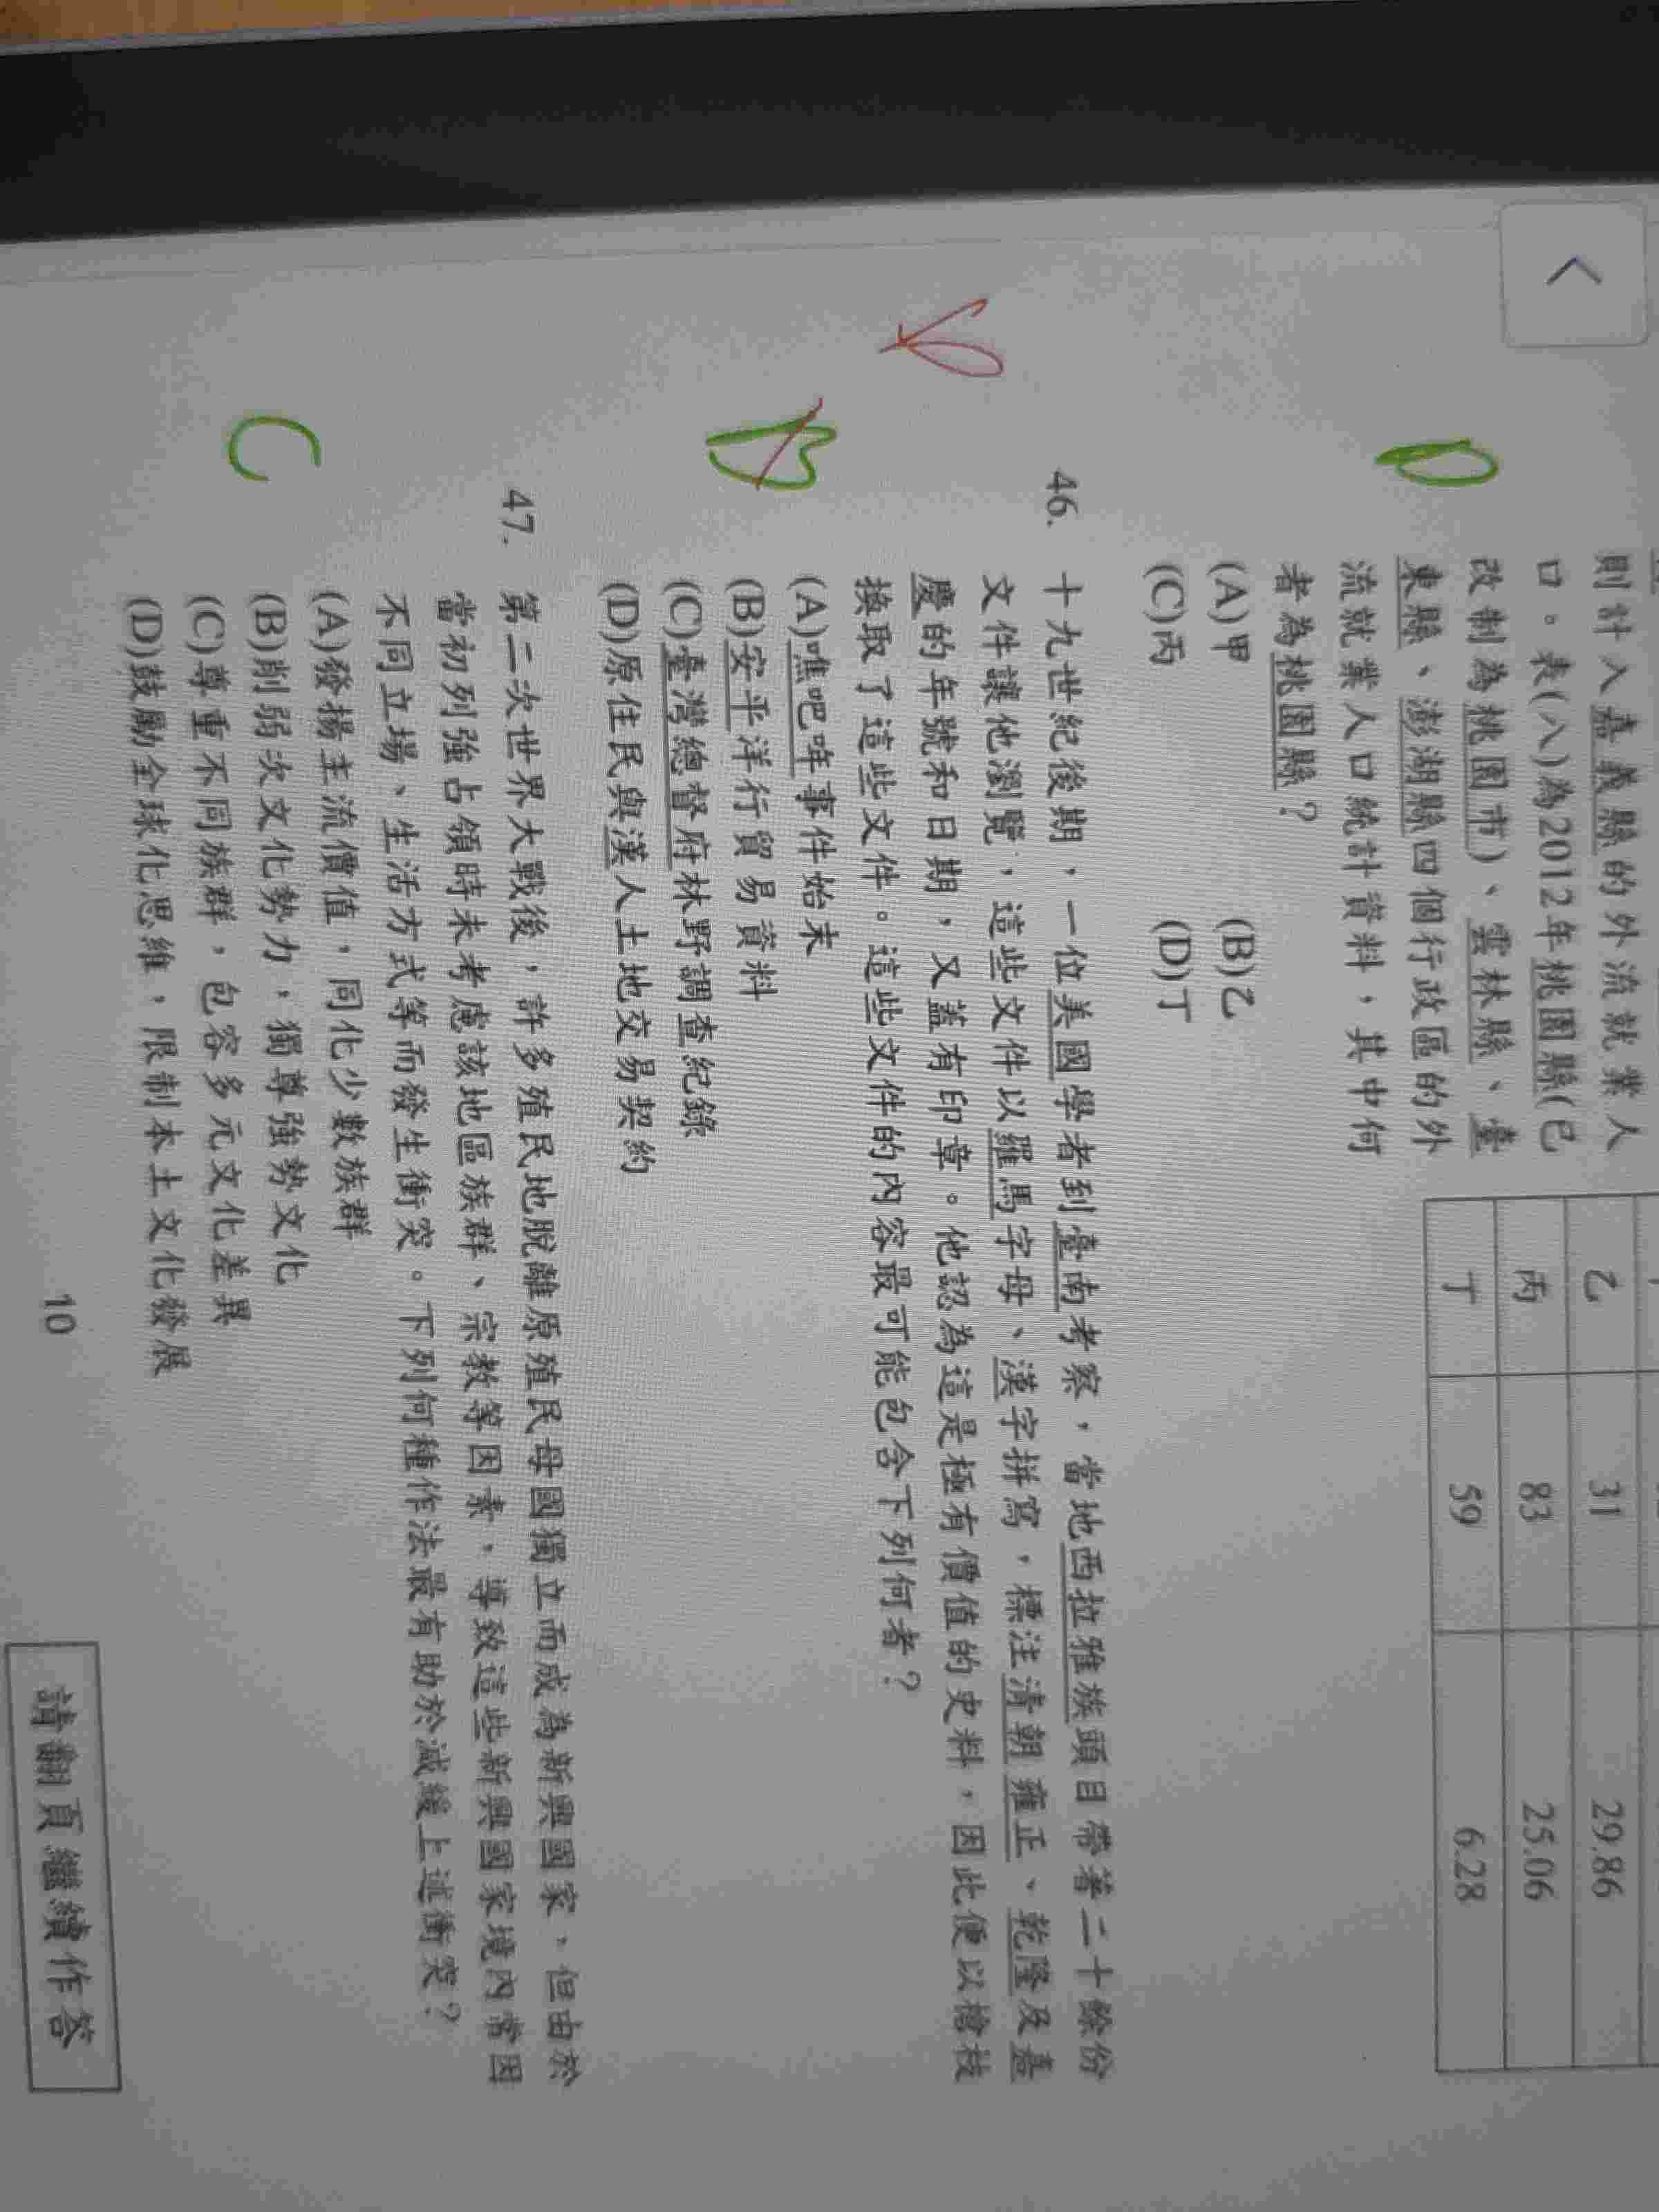 則計入嘉義縣的外流就業人
口。表(八)為2012年桃園縣(已
改制為桃園市)、雲林縣、臺
東縣、澎湖縣四個行政區的外
流就業人口統計資料，其中何
者為桃園縣？
(A)甲 (B)乙
(C)丙 (D)丁
乙 31 29.86
丙 83 25.06
丁 59 6.28
46. 十九世紀後期，一位美國學者到臺南考察，當地西拉雅族頭目帶著二十餘份
文件讓他瀏覽，這些文件以羅馬字母、漢字拼寫，標注清朝雍正、乾隆及嘉
慶的年號和日期，又蓋有印章。他認為這是極有價值的史料，因此便以槍枝
換取了這些文件。這些文件的內容最可能包含下列何者？
(A)噍吧哖事件始末
(B)安平洋行貿易資料
(C)臺灣總督府林野調查紀錄
(D)原住民與漢人土地交易契約
B
47. 第二次世界大戰後，許多殖民地脫離原殖民母國獨立而成為新興國家，但由於
當初列強占領時未考慮該地區族群、宗教等因素，導致這些新興國家境內常因
不同立場、生活方式等而發生衝突。下列何種作法最有助於減緩上述衝突？
(A)發揚主流價值，同化少數族群
(B)削弱次文化勢力，獨尊強勢文化
(C)尊重不同族群，包容多元文化差異
(D)鼓勵全球化思維，限制本土文化發展
C
10
請翻頁繼續作答